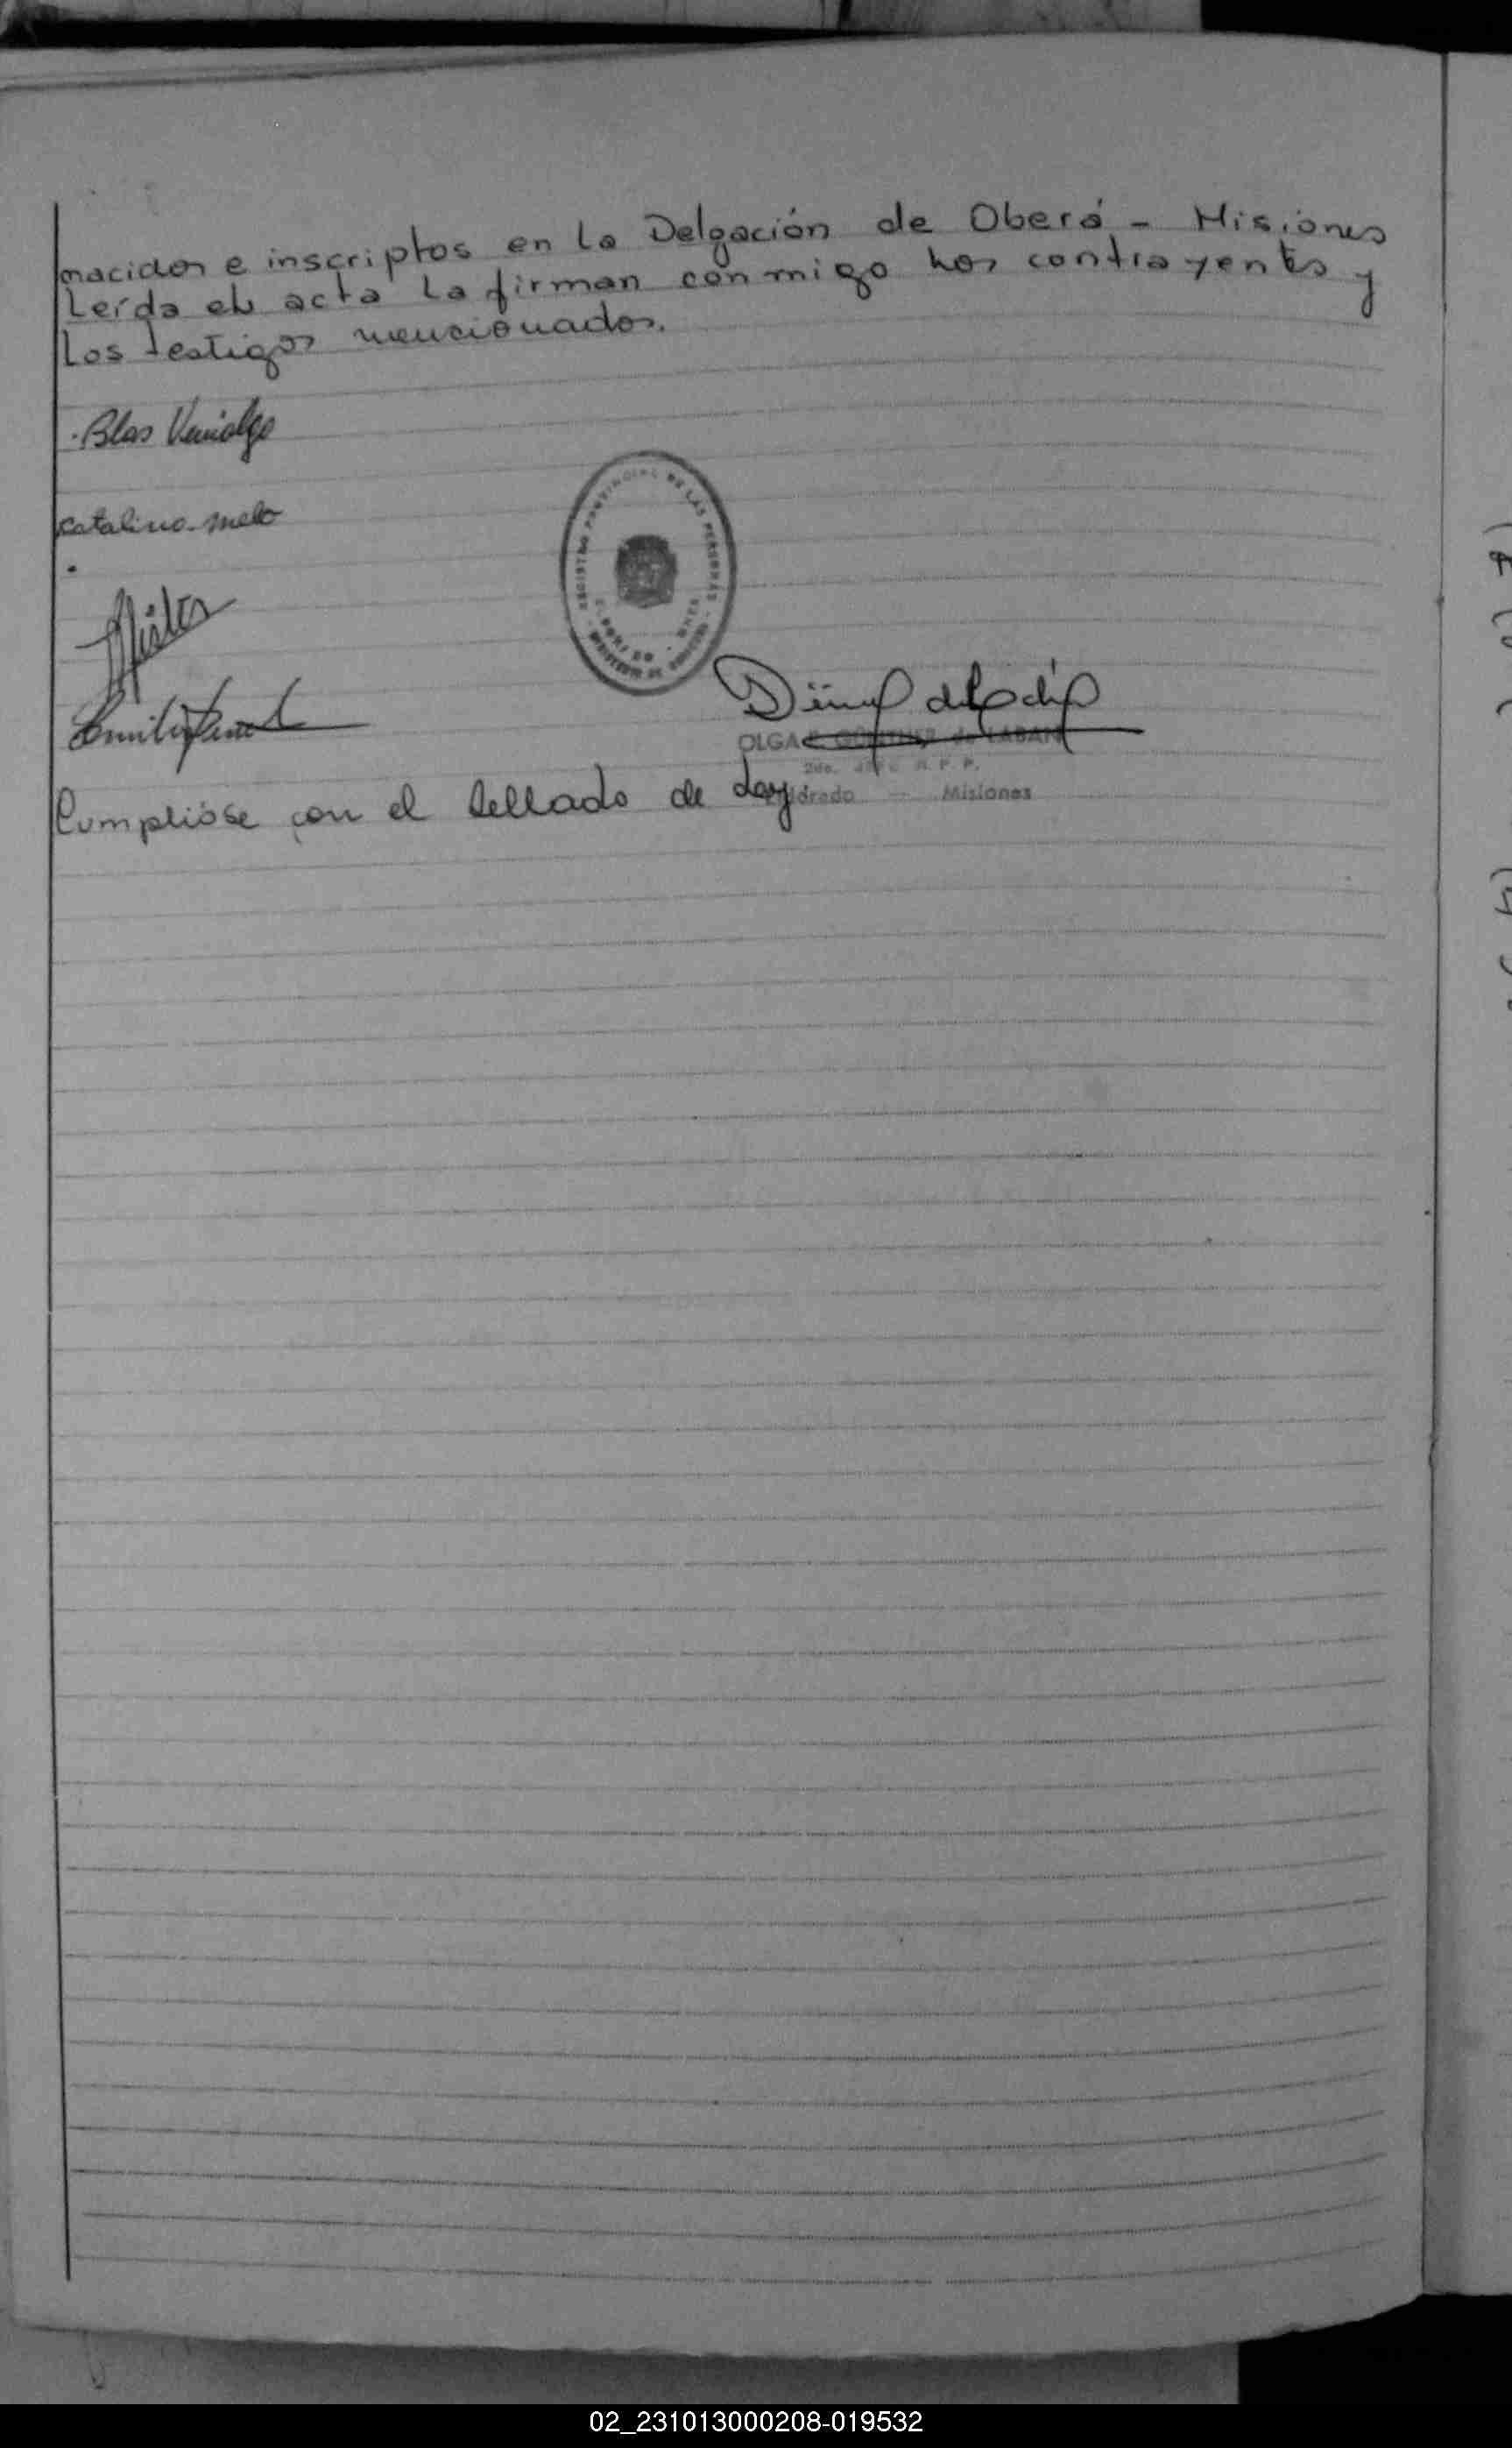 nacidos e inscriptos en la Delgación de Oberá - Misiones
Leída el acta la firman conmigo los contrayentes y
los testigos mencionados.
Blas Venialgo
catalino melo
REGISTRO PROVINCIAL DE LAS PERSONAS
OLGA E. GÜNTHER de LABAN
2do. JEFE R. P. P.
Eldorado — Misiones
Cumplióse con el sellado de Ley
02_231013000208-019532